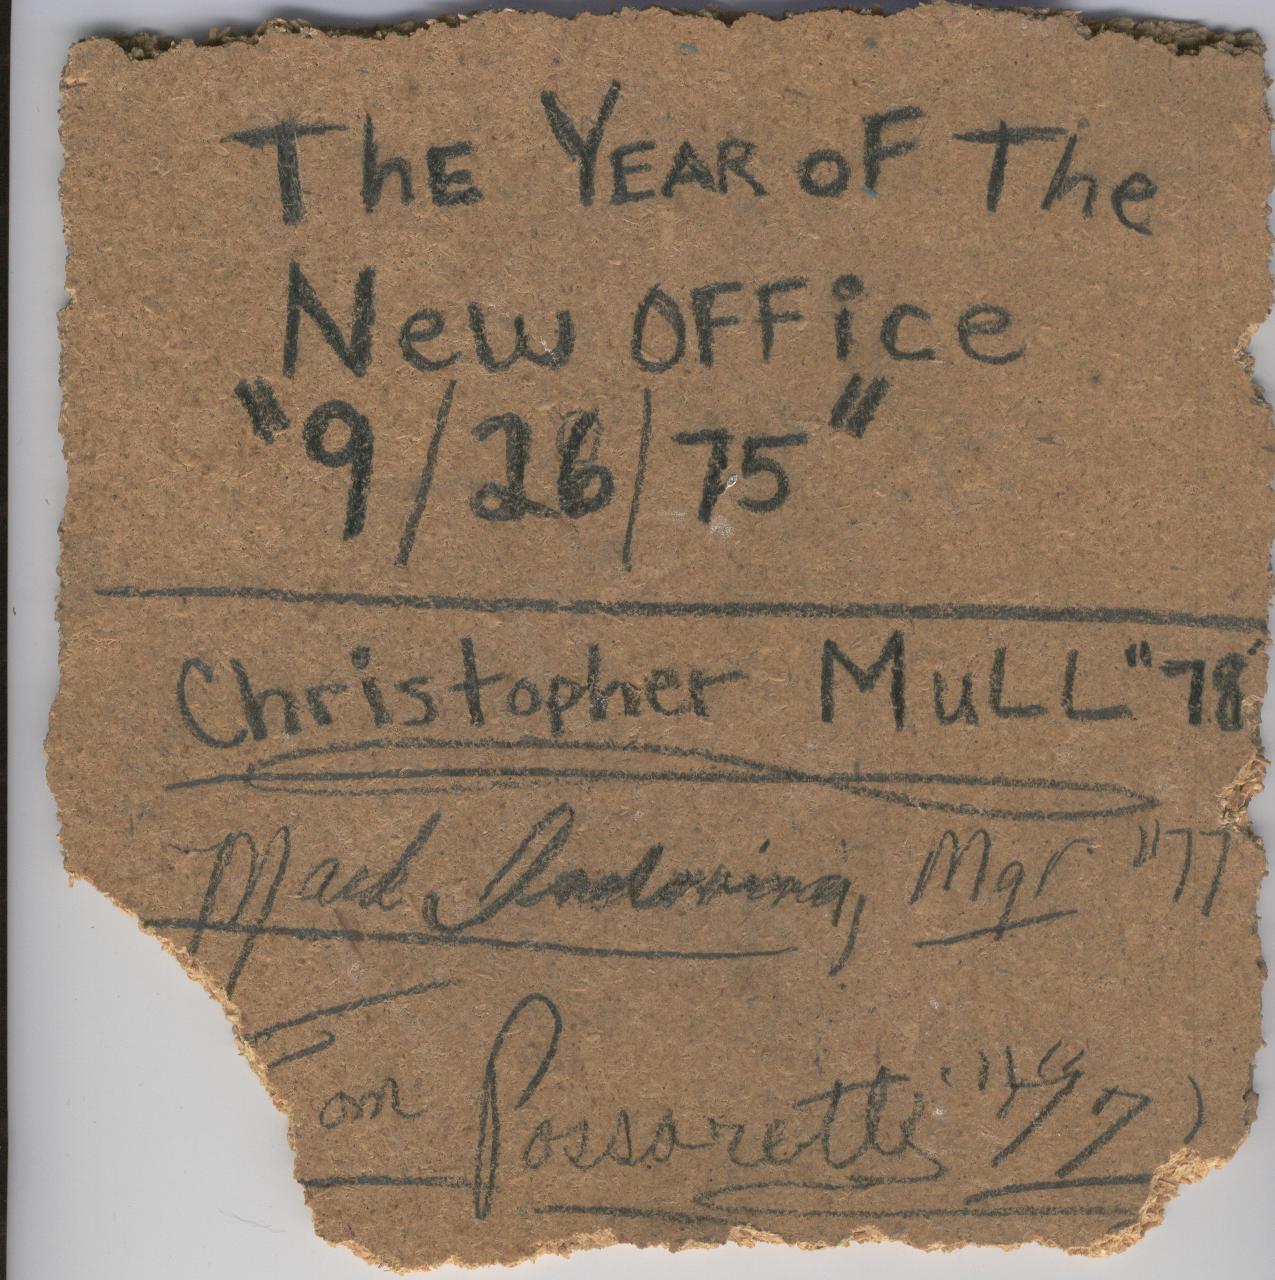 The YEAR OF The
New OFFice
"9/26/75"
Christopher MuLL "78"
Mark Indovina, Mgr "77
Tom Possaretti